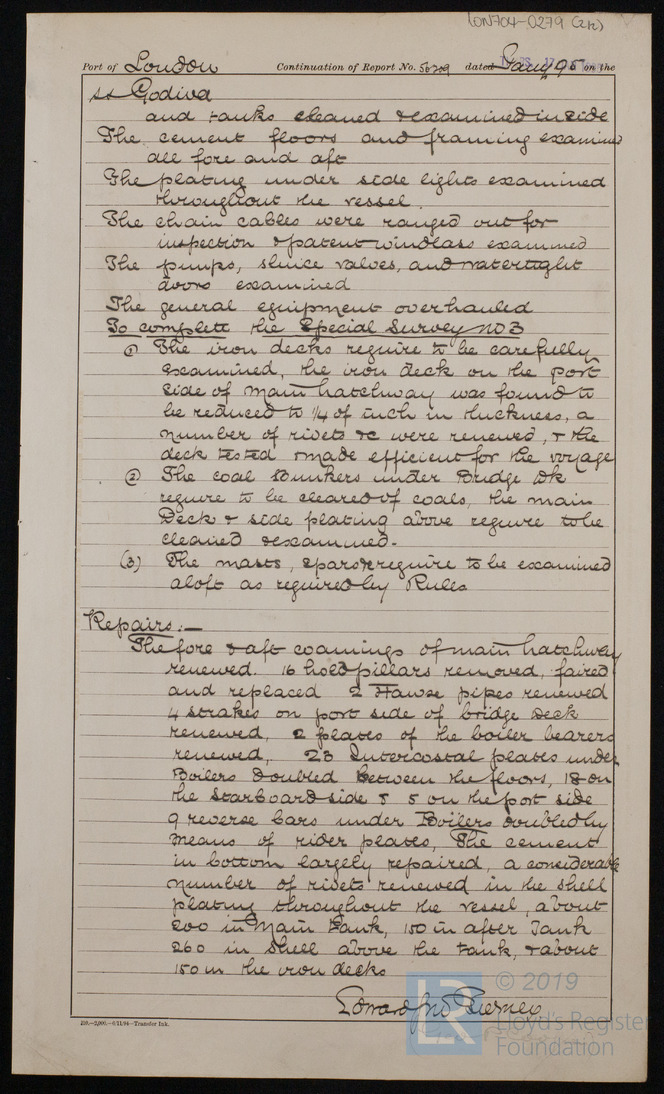 LON704-0279 (2R)
Port of London Continuation of Report No. 56709 dated Jany 95 on the
ss Godiva
and tanks cleaned & examined inside
The cement floors and framing examined
all fore and aft
The plating under side lights examined
throughout the vessel.
The chain cables were ranged out for
inspection & patent windlass examined
The pumps, sluice valves, and watertight
doors examined
The general equipment overhauled
To complete the Special Survey No 3
① The iron decks require to be carefully
examined, the iron deck on the port
side of main hatchway was found to
be reduced to 1/4 of inch in thickness, a
number of rivets &c were renewed, & the
deck tested & made efficient for the voyage
② The coal Bunkers under Bridge Dk
require to be cleared of coals, the main
Deck & side plating above require to be
cleaned & examined.-
(3) The masts, spars & require to be examined
aloft as required by Rules
Repairs:-
The fore & aft coamings of main hatchway
renewed. 16 hold pillars removed, faired
and replaced 2 Hawse pipes renewed
4 strakes on port side of bridge Deck
renewed, 2 plates of the boiler bearers
renewed, 23 Intercostal plates under
Boilers doubled between the floors, 18 on
the Starboard side & 5 on the port side
9 reverse bars under Boilers doubled by
means of rider plates, The cement
in bottom largely repaired, a considerable
number of rivets renewed in the shell
plating throughout the vessel, about
200 in Main Tank, 150 in after Tank
260 in shell above the Tank, & about
150 in the iron decks
210.-2,000.-6/11/94-Transfer Ink.
© 2019
LR
Lloyd's Register
Foundation